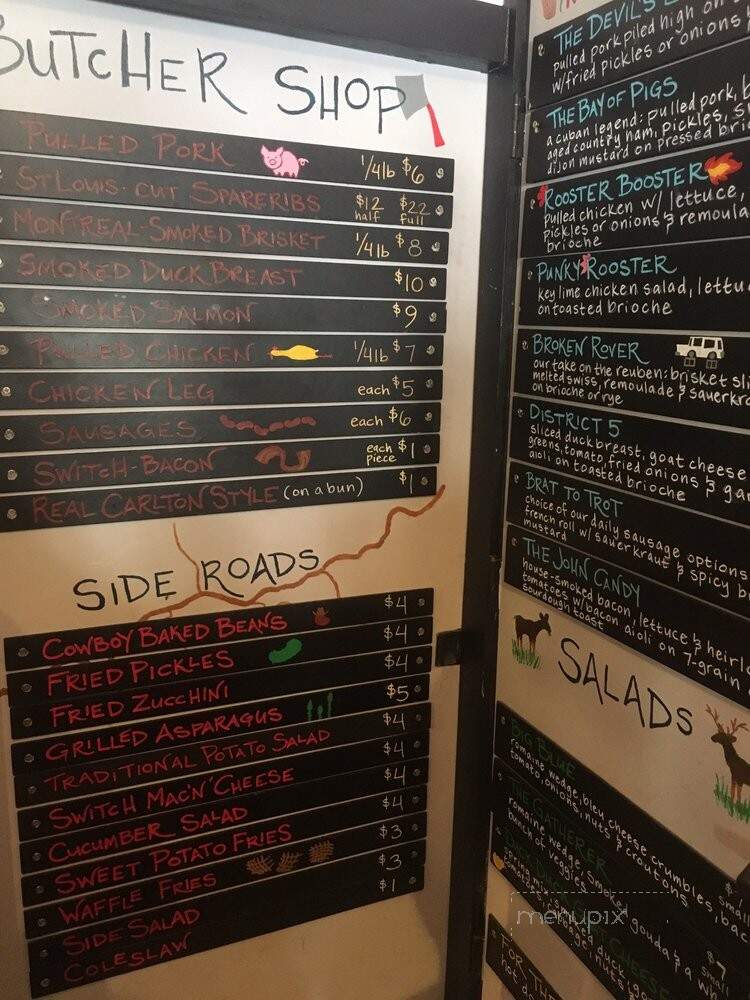 BUTCHER SHOP
PULLED PORK 1/4lb $6
ST LOUIS-CUT SPARERIBS $12 half $22 full
MONTREAL SMOKED BRISKET 1/4lb $8
SMOKED DUCK BREAST $10
SMOKED SALMON $9
PULLED CHICKEN 1/4lb $7
CHICKEN LEG each $5
SAUSAGES each $6
SWITCH-BACON each piece $1
REAL CARLTON STYLE (on a bun) $1
SIDE ROADS
COWBOY BAKED BEANS $4
FRIED PICKLES $4
FRIED ZUCCHINI $4
GRILLED ASPARAGUS $5
TRADITIONAL POTATO SALAD $4
SWITCH MAC'N'CHEESE $4
CUCUMBER SALAD $4
SWEET POTATO FRIES $4
WAFFLE FRIES $3
SIDE SALAD $3
COLESLAW $1
THE DEVIL'S
pulled pork piled high on
w/fried pickles or onions
THE BAY OF PIGS
a cuban legend: pulled pork,
aged country ham, pickles,
dijon mustard on pressed
ROOSTER BOOSTER
pulled chicken w/ lettuce,
pickles or onions &
brioche
PUNKY ROOSTER
key lime chicken salad,
on toasted brioche
BROKEN ROVER
our take on the reuben: brisket
melted swiss, remoulade &
on brioche or rye
DISTRICT 5
sliced duck breast, goat cheese
greens, tomato, fried onions &
aioli on toasted brioche
BRAT TO TROT
choice of our daily sausage options
french roll w/ sauerkraut & spicy
mustard
THE JOHN CANDY
house-smoked bacon, lettuce &
tomatoes w/bacon aioli on 7-grain
sourdough toast
SALADS
BIG BLUE
romaine wedge, bleu cheese crumbles,
tomato, onions, nuts & croutons
THE GATHERER
romaine wedge, smoked gouda & a
bunch of veggies
$7
small
CHEESE
FOR
menupix